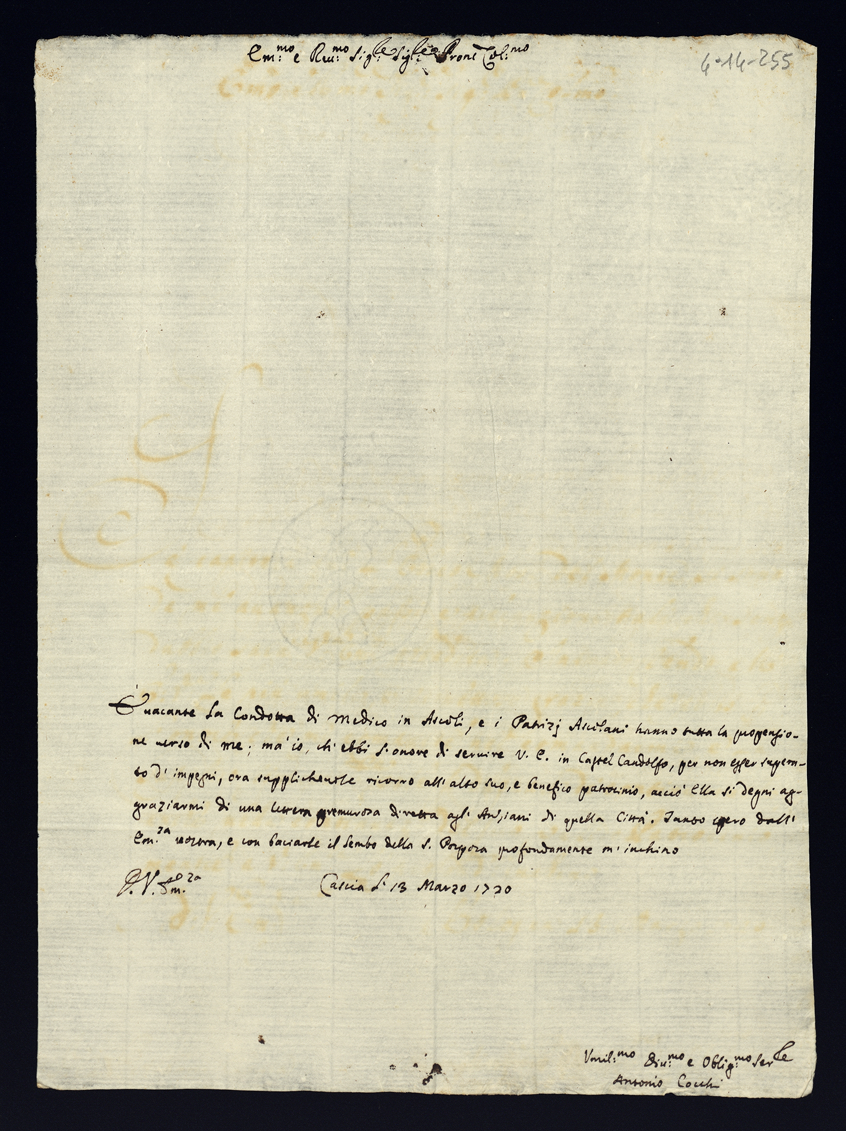 4-14-255
Em:mo e Reu:mo Sig:le Sig:le Prone Col:mo
È uacante la Condotta di Medico in Ascoli, e i Patrizj Ascolani hanno tutta la propensio-
ne uerso di me; ma' io, ch'ebbi l'onore di seruire V. E. in Castel Candolfo, per non esser
to d'impegni, ora supplicheuole ricorro all'alto suo, e benefico patrocinio, acciò Ella si degni ag-
graziarmi di una lettera premurosa diretta agl' Anziani di quella Città. Tanto spero dall'
Em:za uostra, e con baciarle il lembo della S. Porpora profondamente m'inchino
D. V. Em:za
Cascia li 13 Marzo 1720
Vmil:mo Diu:mo e Oblig:mo Ser:le
Antonio Cocchi